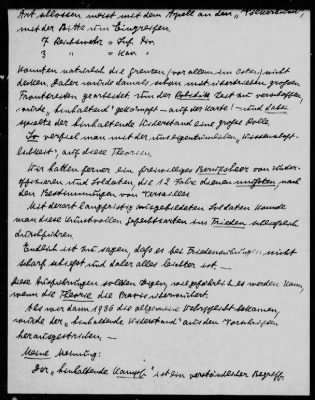 Art schlossen meist mit dem Apell an den „Völkerbund",
mit der Bitte um Eingreifen.
7 Reichswehr = Inf. Div.
3 " = Kav. "
Konnten natürlich die Grenzen (vor allem im Osten) nicht
decken. Daher wurde damals schon mit überbreiten großen
Frontbreiten gearbeitet um der Politik Zeit zu verschaffen,
wurde „hinhaltend" gekämpft – auf der Karte! – und dabei
spielte der hinhaltende Widerstand eine große Rolle.
So verfiel man mit der uns eigentümlichen „Wissenschaft-
lichkeit", auf diese Theorien.
Wir hatten ferner ein freiwilliges Berufsheer von Unter-
offizieren und Soldaten, die 12 Jahre dienen mußten, nach
den Bestimmungen von Versailles
Mit derart langfristig ausgebildeten Soldaten konnte
man diese kunstvollen Gefechtsarten im Frieden schließlich
durchführen
Endlich ist zu sagen, daß es bei Friedensübungen nicht
scharf schießt und daher alles leichter ist. —
Diese Ausführungen sollen zeigen, wie gefährlich es werden kann,
wenn die Theorie die Praxis überwuchert.
Als wir dann 1936 die allgemeine Wehrpflicht bekamen,
wurde der „hinhaltende Widerstand" aus den Vorschriften
herausgestrichen. —
Meine Meinung:
Der „hinhaltende Kampf" ist ein verständlicher Begriff.